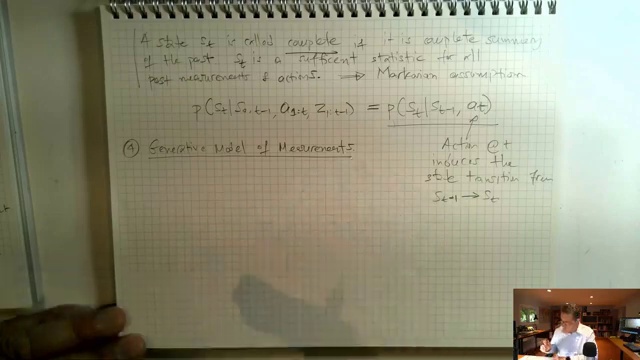 A state St is called complete if it is complete summary
of the past St is a sufficent statistic for all
past measurements & actions. → Markovian assumption
p(St|S0:t-1, a0:t, z1:t-1) = p(St|St-1, at)
Action @ t
induces the
state transition from
St-1 → St
④ Generative Model of Measurements